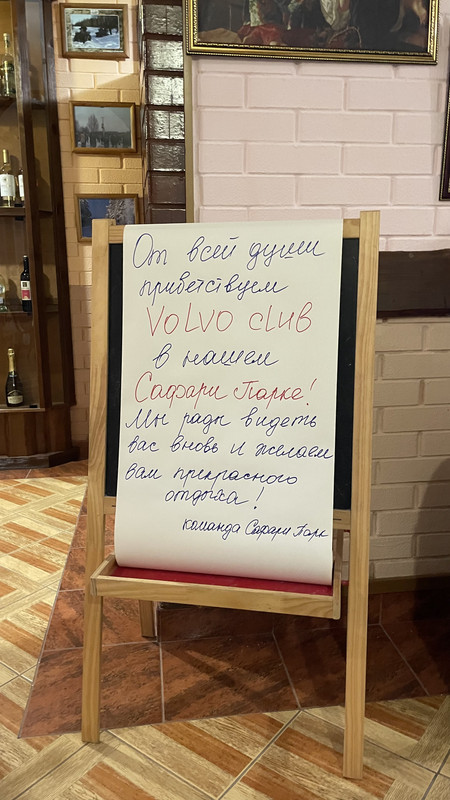 От всей души
приветствуем
VOLVO club
в нашем
Сафари Парке!
Мы рады видеть
вас вновь и желаем
вам прекрасного
отдыха!
команда Сафари Парк